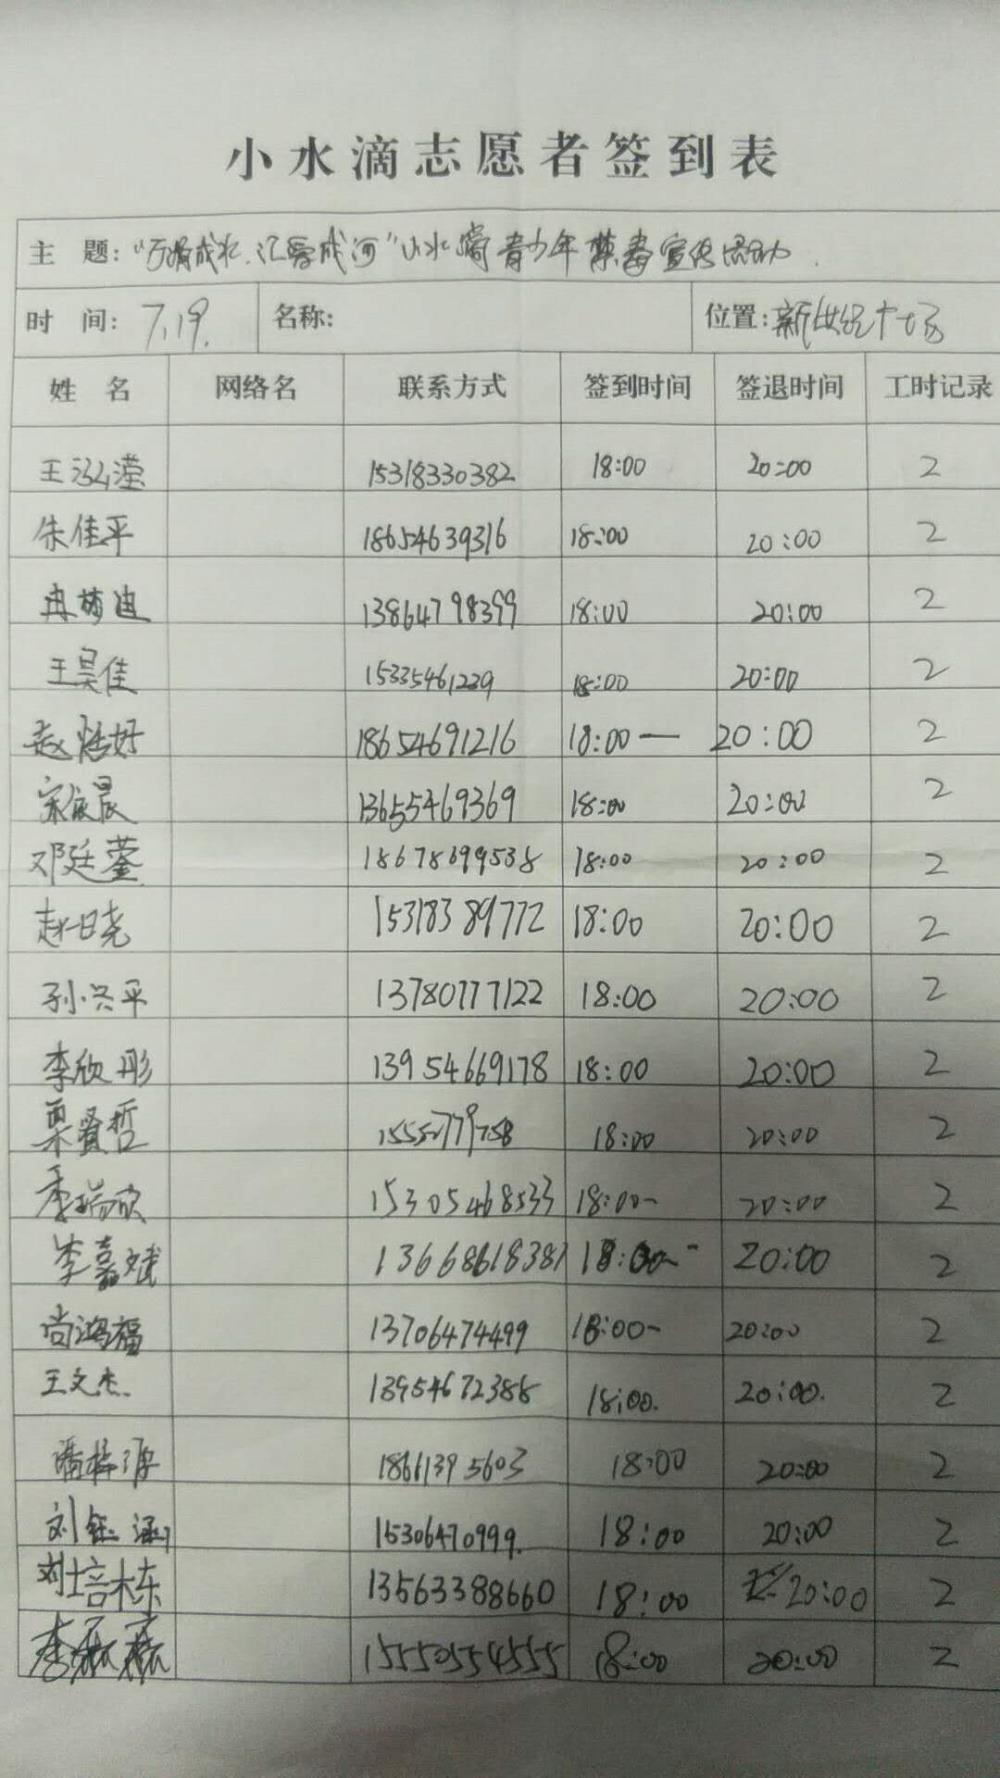 小水滴志愿者签到表
主 题: "万滴成水.汇爱成河"小水滴青少年禁毒宣传活动.
时 间: 7.19. 名称: 位置: 新世纪广场
姓 名 网络名 联系方式 签到时间 签退时间 工时记录
王泓滢 15318330382 18:00 20:00 2
朱佳平 18654639316 18:00 20:00 2
冉梦迪 13864798399 18:00 20:00 2
王昊佳 15335461239 18:00 20:00 2
赵恬好 18654691216 18:00— 20:00 2
宋俊晨 13655469369 18:00 20:00 2
邓廷蓥 18678699538 18:00 20:00 2
赵日尧 15318389772 18:00 20:00 2
孙兴平 13780777122 18:00 20:00 2
李欣彤 13954669178 18:00 20:00 2
栗賢哲 18:00 20:00 2
季瑞欣 15305468533 18:00- 20:00 2
李嘉斌 13668618387 18:00- 20:00 2
尚鸿福 13706474499 18:00- 20:00 2
王文杰. 13954672388 18:00. 20:00. 2
潘梓源 18661395603 18:00 20:00 2
刘钰涵 15306470999. 18:00 20:00 2
刘培栋 13563388660 18:00 20:00 2
李 15550554555 18:00 20:00 2